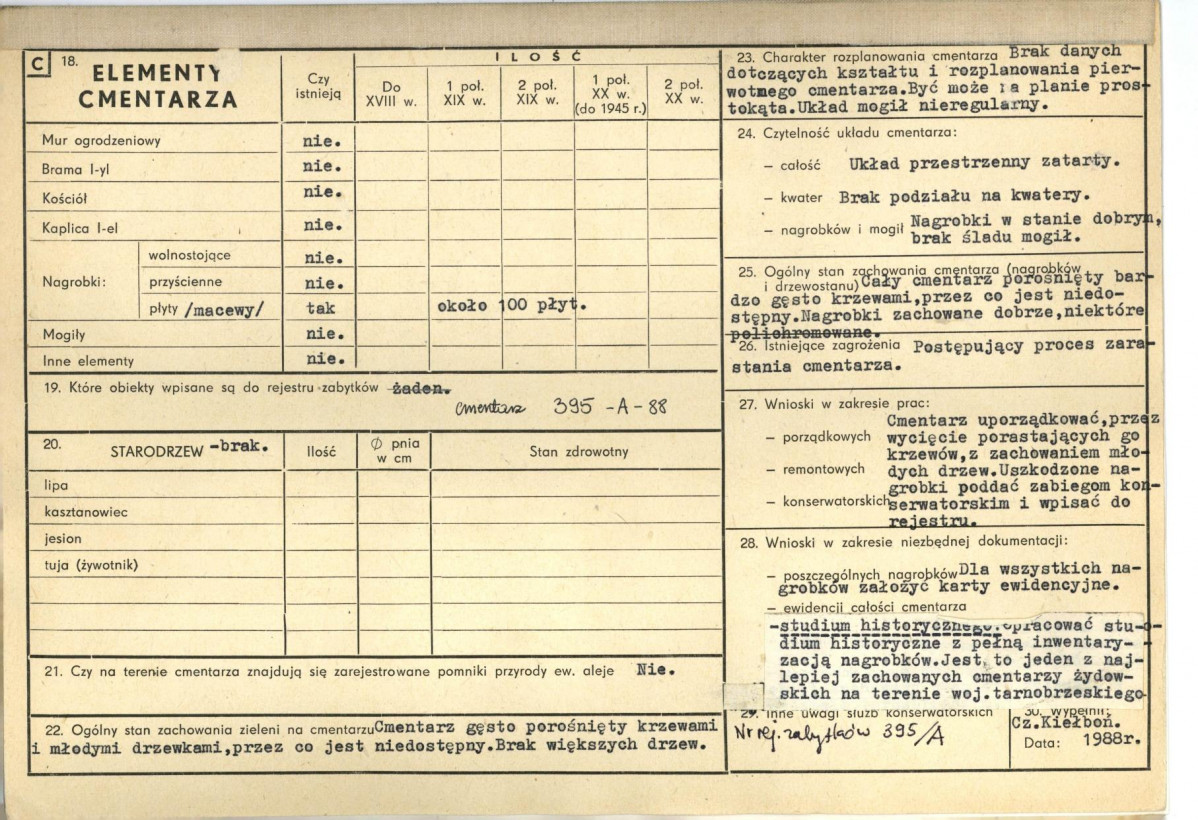 C 18. ELEMENTY
CMENTARZA
Czy
istnieją
ILOŚĆ
Do
XVIII w.
1 poł.
XIX w.
2 poł.
XIX w.
1 poł.
XX w.
(do 1945 r.)
2 poł.
XX w.
Mur ogrodzeniowy nie.
Brama I-yl nie.
Kościół nie.
Kaplica I-el nie.
Nagrobki:
wolnostojące nie.
przyścienne nie.
płyty /macewy/ tak około 100 płyt.
Mogiły nie.
Inne elementy nie.
19. Które obiekty wpisane są do rejestru zabytków żaden.
cmentarz 395-A-88
20. STARODRZEW -brak.
Ilość
Ø pnia
w cm
Stan zdrowotny
lipa
kasztanowiec
jesion
tuja (żywotnik)
21. Czy na terenie cmentarza znajdują się zarejestrowane pomniki przyrody ew. aleje Nie.
22. Ogólny stan zachowania zieleni na cmentarzu Cmentarz gęsto porośnięty krzewami
i młodymi drzewkami,przez co jest niedostępny.Brak większych drzew.
23. Charakter rozplanowania cmentarza Brak danych
dotczących kształtu i rozplanowania pier-
wotnego cmentarza.Być może na planie pros-
tokąta.Układ mogił nieregularny.
24. Czytelność układu cmentarza:
– całość Układ przestrzenny zatarty.
– kwater Brak podziału na kwatery.
– nagrobków i mogił Nagrobki w stanie dobrym,
brak śladu mogił.
25. Ogólny stan zachowania cmentarza (nagrobków
i drzewostanu) Cały cmentarz porośnięty bar-
dzo gęsto krzewami,przez co jest niedo-
stępny.Nagrobki zachowane dobrze,niektóre
polichromowane.
26. Istniejące zagrożenia Postępujący proces zara-
stania cmentarza.
27. Wnioski w zakresie prac:
Cmentarz uporządkować,przez
– porządkowych wycięcie porastających go
krzewów,z zachowaniem mło-
– remontowych dych drzew.Uszkodzone na-
grobki poddać zabiegom kon-
– konserwatorskich serwatorskim i wpisać do
rejestru.
28. Wnioski w zakresie niezbędnej dokumentacji:
– poszczególnych nagrobków Dla wszystkich na-
grobków założyć karty ewidencyjne.
– ewidencji całości cmentarza
-studium historycznego.opracować stu-
dium historyczne z pełną inwentary-
zacją nagrobków.Jest to jeden z naj-
lepiej zachowanych cmentarzy żydow-
skich na terenie woj.tarnobrzeskiego
29. Inne uwagi służb konserwatorskich
Nr rej. zabytków 395/A
30. Wypełnił:
Cz.Kiełboń.
Data: 1988r.